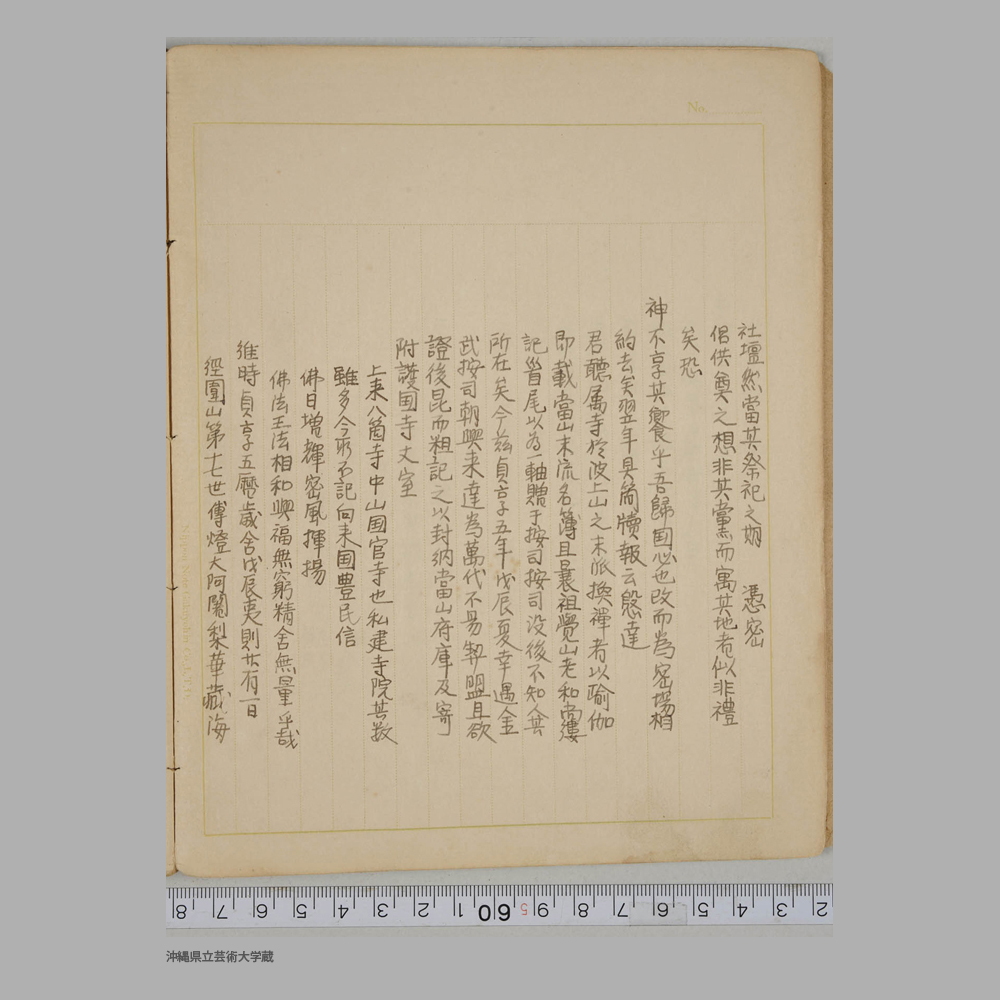 No.
社壇然當其祭祀之期 憑密
侶供奠之想非其黨而寓其地者似非禮
矣恐
神不享其饗乎吾歸国必也改而為密場相
約去矣翌年具簡牘報云慇達
君聽属寺於波上山之末派換禪者以瑜伽
即載當山末流名簿且曩祖覺山老和尚縷
記首尾以為一軸贈于按司按司没後不知其
所在矣今茲貞享五年戊辰夏幸遇金
武按司朝興来達為萬代不易契盟且欲
證後昆而粗記之以封納當山府庫及寄
附護国寺丈室
上来八箇寺中山国官寺也私建寺院其数
雖多今所不記向来国豊民信
佛日増輝密風揮揚
佛法王法相和興福無窮精舍無量乎哉
維時貞享五暦歳舍戊辰夷則廿有一日
徑圍山第十七世傳燈大阿闍梨華藏海
8 7 6 5 4 3 2 1 60 5 9 8 7 6 5 4 3 2
沖縄県立芸術大学蔵